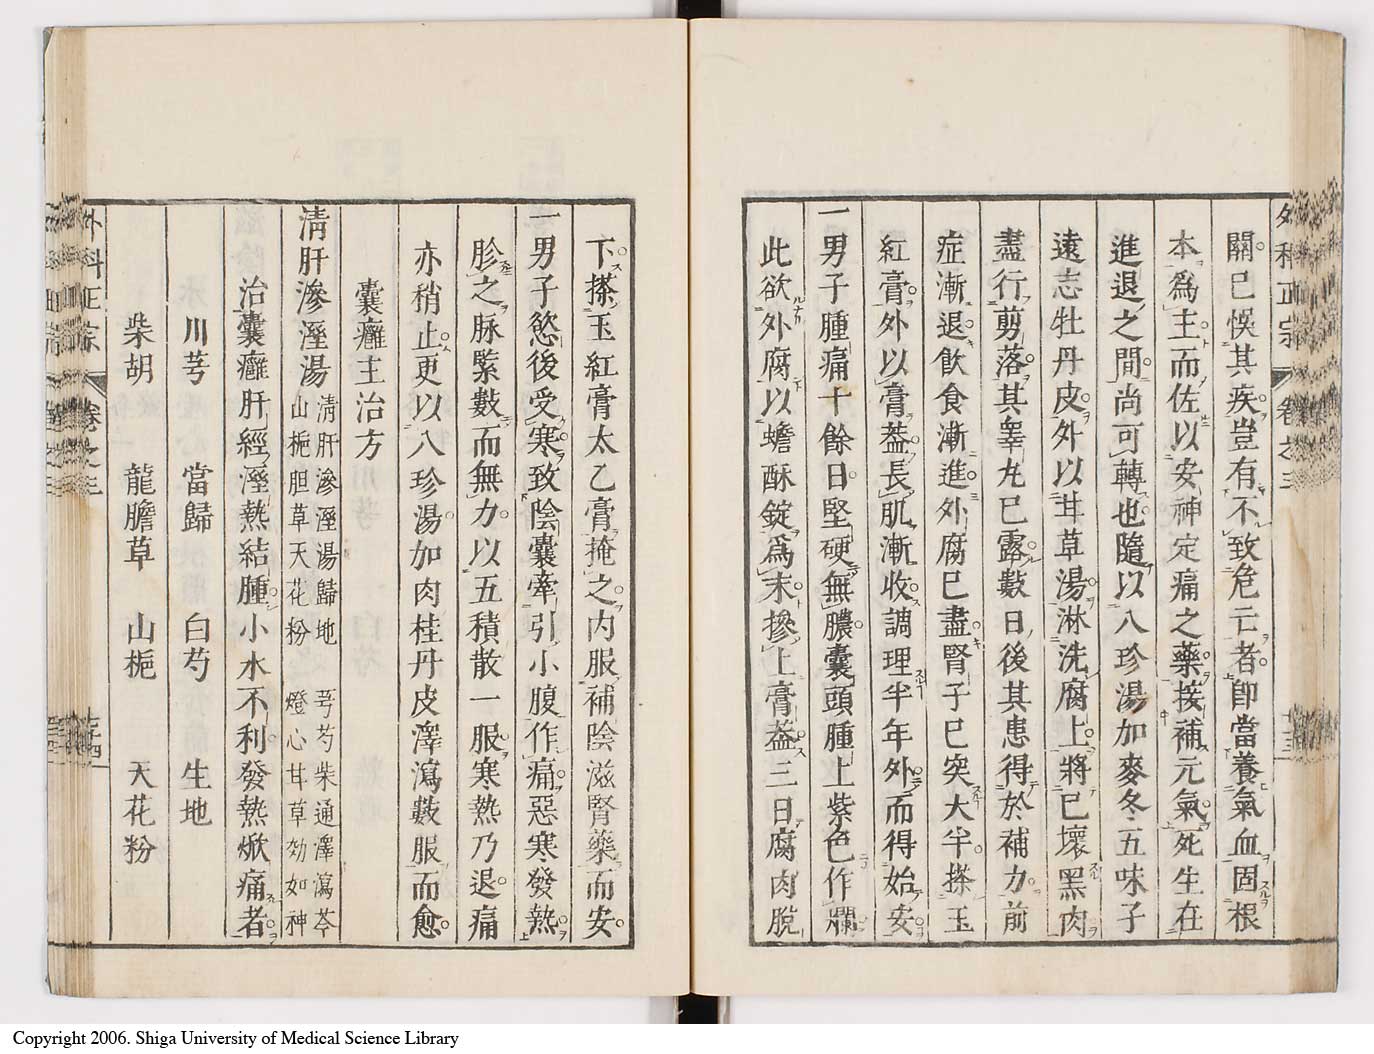 關已悞其疾豈有不致危亡者卽當養氣血固根
本爲主而佐以安神定痛之藥按補元氣死生在
進退之間尚可轉也隨以八珍湯加麥冬五味子
遠志牡丹皮外以甘草湯淋洗腐上將已壞黑肉
盡行剪落其睾丸已露數日後其患得於補力前
症漸退飲食漸進外腐已盡腎子已突大半搽玉
紅膏外以膏葢長肌漸收調理半年外而得始安
一男子腫痛十餘日堅硬無膿囊頭腫上紫色作爛
此欲外腐以蟾酥錠爲末摻上膏葢三日腐肉脫
外科正宗
卷之三
下搽玉紅膏太乙膏掩之內服補陰滋腎藥而安
一男子慾後受寒致陰囊牽引小腹作痛惡寒發熱
胗之脉緊數而無力以五積散一服寒熱乃退痛
亦稍止更以八珍湯加肉桂丹皮澤瀉數服而愈
囊癰主治方
淸肝滲溼湯 淸肝滲溼湯歸地 芎芍柴通澤瀉苓
山梔胆草天花粉 燈心甘草効如神
治囊癰肝經溼熱結腫小水不利發熱焮痛者
川芎 當歸 白芍 生地
柴胡 龍膽草 山梔 天花粉
外科正宗
卷之三
Copyright 2006. Shiga University of Medical Science Library